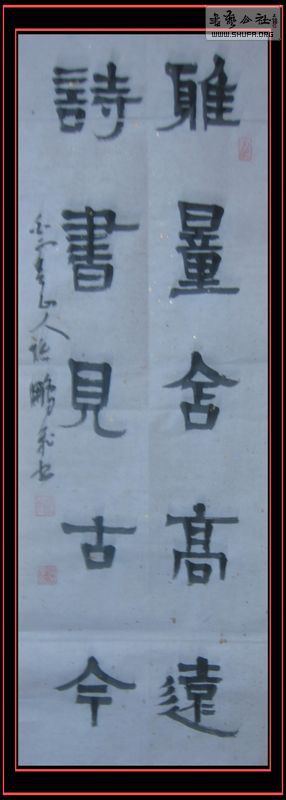 書藝公社
WWW.SHUFA.ORG
雅量含高遠
詩書見古今
山人 鵬